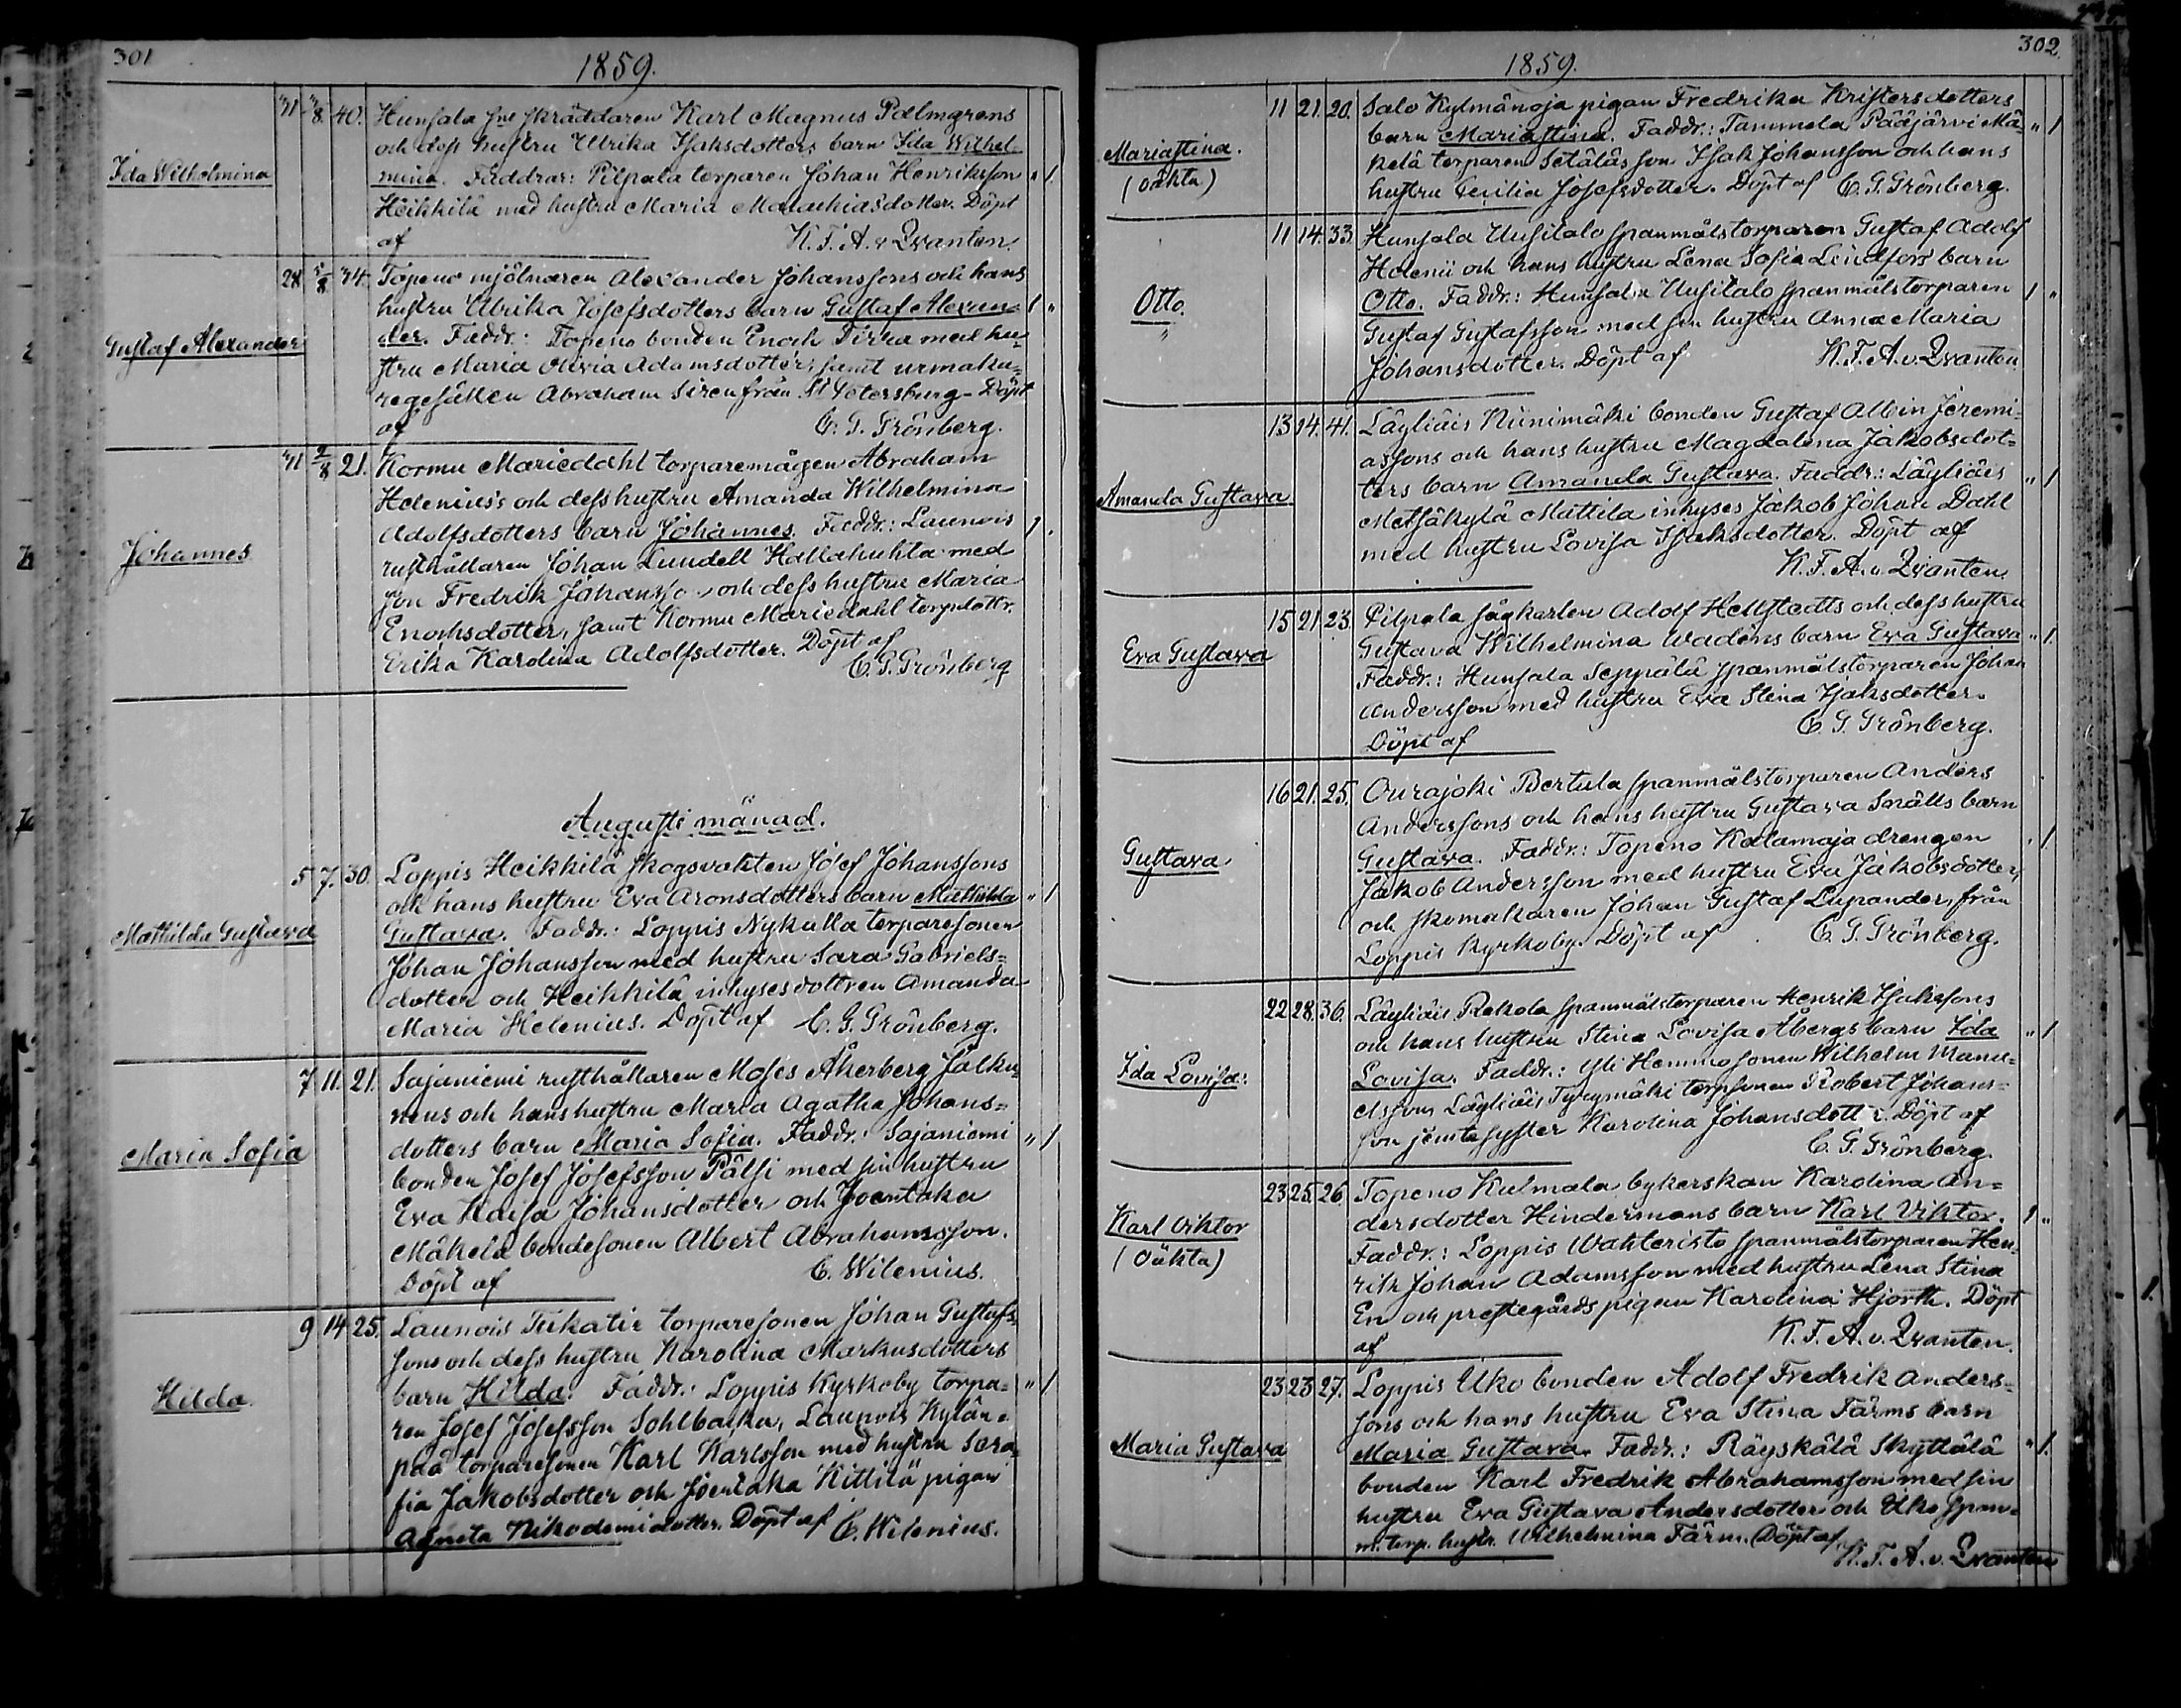 301
1859.
Ida Wilhelmina
31 3/8. 40. Hunsala skräddaren Karl Magnus Palmgrens
och dess hustru Ulrika Isaksdotters barn Ida Wilhel
mina. Faddrar: Pilpala torparen Johan Henriksson " 1.
Heikkilä med hustru Maria Malachiasdotter. Döpt
af K. F. A. v Qvanten.
Gustaf Alexander
28 34. Topeno mjölnaren Alexander Johanssons och hans
hustru Ulrika Josefsdotters barn Gustaf Alexan= 1 "
der. Faddr.: Topeno bonden Enoch Pirka med hu=
stru Maria Olivia Adamsdotter, samt urmaka=
regesällen Abraham Siren från St Petersburg. Döpt
af C. G. Grönberg.
Johannes
31 2/8 21. Kormu Mariedahl torparemågen Abraham
Helenius's och dess hustru Amanda Wilhelmina
Adolfsdotters barn Johannes. Faddr.: Launois 1 "
rusthållaren Johan Lundell Hallahuhta med
son Fredrik Johansson och dess hustru Maria
Enochsdotter, samt Kormu Mariedahl torpdottr.
Erika Karolina Adolfsdotter. Döpt af
C. G. Grönberg
Augusti månad.
Mathilda Gustava
5 7. 30. Loppis Heikkilä skogsvakten Josef Johanssons
och hans hustru Eva Aronsdotters barn Mathilda " 1
Gustava. Faddr.: Loppis Nykulla torparesonen
Johan Johansson med hustru Sara Gabriels=
dotter och Heikkilä inhysesdottren Amanda
Maria Helenius. Döpt af C. G. Grönberg.
Maria Sofia
7 11. 21. Sajaniemi rusthållaren Moses Åkerberg Jälku=
nens och hans hustru Maria Agatha Johans=
dotters barn Maria Sofia. Faddr.: Sajaniemi " 1
bonden Josef Josefsson Pälsi med sin hustru
Eva Kaisa Johansdotter och Joentaka
Mäkelä bondesonen Albert Abrahamsson.
Döpt af C. Wilenius.
Hilda.
9 14 25. Launois torparesonen Johan Gustafs=
sons och dess hustru Karolina Markusdotters
barn Hilda. Faddr.: Loppis Kyrkoby torpa= " 1.
ren Josef Josefsson Sohlbacka, Launois Kylän=
pää torparesonen Karl Karlsson med hustru Sara=
fia Jakobsdotter och Joentaka Kittilä pigan
Agneta Nikodemidotter. Döpt af C. Wilenius.
302.
1859.
Mariastina.
(oäkta)
11 21. 20. Salo Kylmänoja pigan Fredrika Kristersdotters
barn Mariastina. Faddr.: Tammela Pääjärvi Mä= " 1
kelä torparen Setäläs son Isak Johansson och hans
hustru Cecilia Josefsdotter. Döpt af C. G. Grönberg.
Otto.
"
11 14. 33. Hunsala Uusitalo spanmålstorparen Gustaf Adolf
Helenii och hans hustru Lena Sofia Lindfors barn
Otto. Faddr.: Hunsala Uusitalo spanmålstorparen 1 "
Gustaf Gustafsson med sin hustru Anna Maria
Johansdotter. Döpt af K. F. A. v. Qvanten.
Amanda Gustava
13 14. 41. Läyliäis Niinimäki bonden Gustaf Albin Jeremi=
assons och hans hustru Magdalena Jakobsdot=
ters barn Amanda Gustava. Faddr.: Läyliäis " 1
Metsäkylä Mattila inhyses Jakob Johan Dahl
med hustru Lovisa Isaksdotter. Döpt af
K. F. A. v. Qvanten.
Eva Gustava
15 21. 23. Pilpala sågkarlen Adolf Hellstedts och dess hustru
Gustava Wilhelmina Wadéns barn Eva Gustava " 1.
Faddr.: Hunsala Seppälä spanmålstorparen Johan
Andersson med hustru Eva Stena Isaksdotter.
Döpt af C. G. Grönberg.
Gustava
16 21. 25. Ourajoki Bertula spanmålstorparen Anders
Anderssons och hans hustru Gustava Snälls barn
Gustava. Faddr.: Topeno Kalamaja drengen " 1.
Jakob Andersson med hustru Eva Jakobsdotter,
och skomakaren Johan Gustaf Lupander från
Loppis Kyrkoby. Döpt af C. G. Grönberg.
Ida Lovisa.
22 28. 36. Läyliäis Rekola spanmålstorparen Henrik Isakssons
och hans hustru Stina Lovisa Åbergs barn Ida " 1
Lovisa. Faddr.: Yli Hemmosonen Wilhelm Manu=
elsson, Läyliäis torpsonen Robert Johans=
son jemte syster Karolina Johansdott r. Döpt af
C. G. Grönberg.
Karl Viktor
(oäkta)
23 25. 26. Topeno Kulmala bykerskan Karolina An=
dersdotter Hindermans barn Karl Viktor. 1 "
Faddr.: Loppis Wahteristo spanmålstorparen Hen=
rik Johan Adamsson med hustru Lena Stina
En och prestegårds pigan Karolina Hjorth. Döpt
af K. F. A. v. Qvanten.
Maria Gustava
23 23. 27. Loppis Uko bonden Adolf Fredrik Anders=
sons och hans hustru Eva Stina Färms barn
Maria Gustava. Faddr.: Räyskälä Skyttälä " 1.
bonden Karl Fredrik Abrahamsson med sin
hustru Eva Gustava Andersdotter och Uko span=
m. torp. hustr. Wilhelmina Färm. Döpt af
K. F. A. v. Qvanten